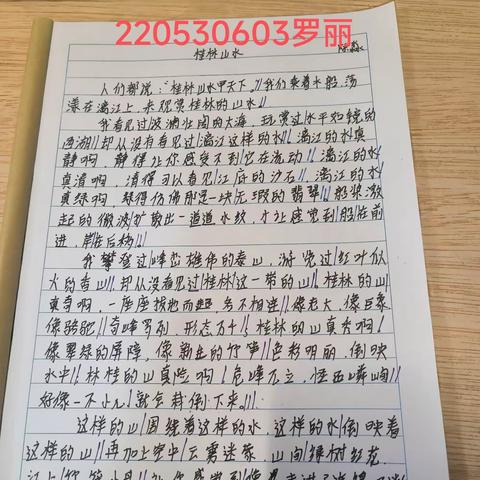 220530603罗丽
桂林山水
陈淼
人们都说："桂林山水甲天下。"//我们乘着木船,荡
漾在漓江上,来观赏桂林的山水//
我看见过/波澜壮阔的大海,玩赏过/水平如镜的
西湖//却从没有看见过/漓江这样的水//漓江的水真
静啊,静得让你感觉不到它在流动//漓江的水
真清啊,清得可以看见/江底的沙石//漓江的水
真绿啊,绿得仿佛那是一块无瑕的翡翠//船桨激
起的微波/扩散出一道道水纹,才让感觉到/船在前
进,岸在后移//
我攀登过/峰峦雄伟的泰山,游览过/红叶似
火的香山//却从没看见过/桂林/这一带的山//桂林的山
真奇啊,一座座拔地而起,各不相连//像老人,像巨象
像骆驼//奇峰罗列 形态万千//桂林的山真秀啊/
像翠绿的屏障,像新生的竹笋//色彩明丽,倒映
水中//林桂的山真险啊/危峰兀立,怪石嶙峋//
好像一不小儿/就会栽倒下来//
这样的山/围绕着这样的水,这样的水/倒映着
这样的山//再加上空中/云雾迷蒙,山间/绿树红花,
江上/竹筏小舟//让你感觉到/像是走进了